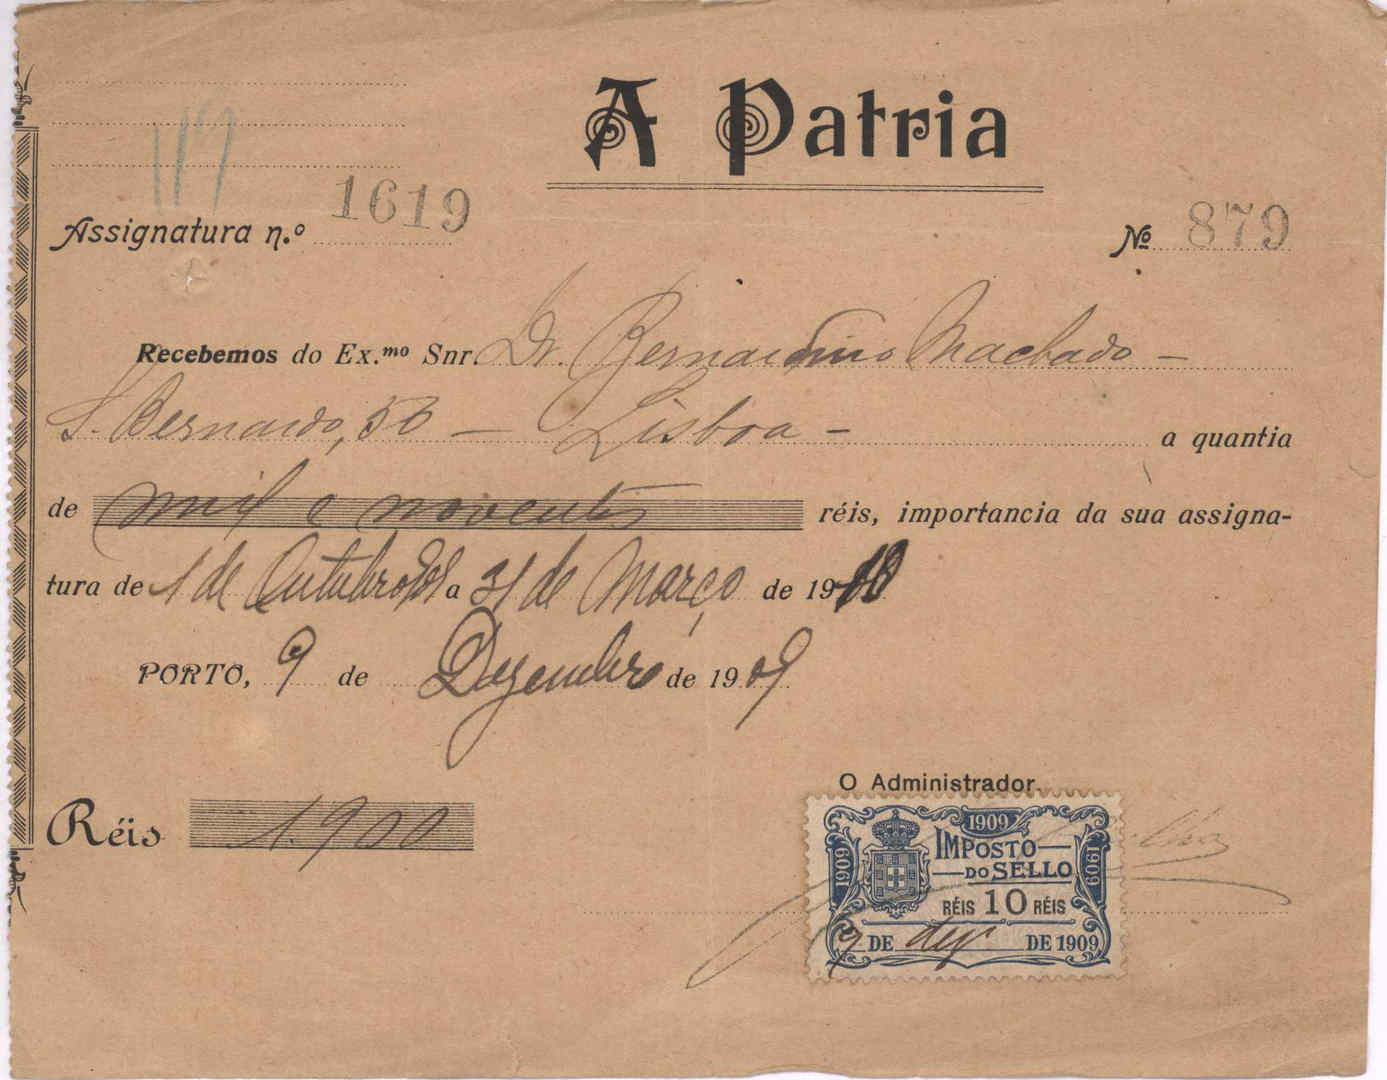 A Patria
117
Assignatura n.º 1619
Nº 879
Recebemos do Ex.mo Snr. Dr. Bernardino Machado —
S. Bernardo, — Lisboa — a quantia
de mil e novecentos réis, importancia da sua assigna-
tura de 1 de Outubro a 31 de Março de 1910
PORTO, 9 de Dezembro de 1909
O Administrador
Réis 1.900
1909
1909 IMPOSTO 1909
DO SELLO
RÉIS 10 RÉIS
9 DE dez DE 1909